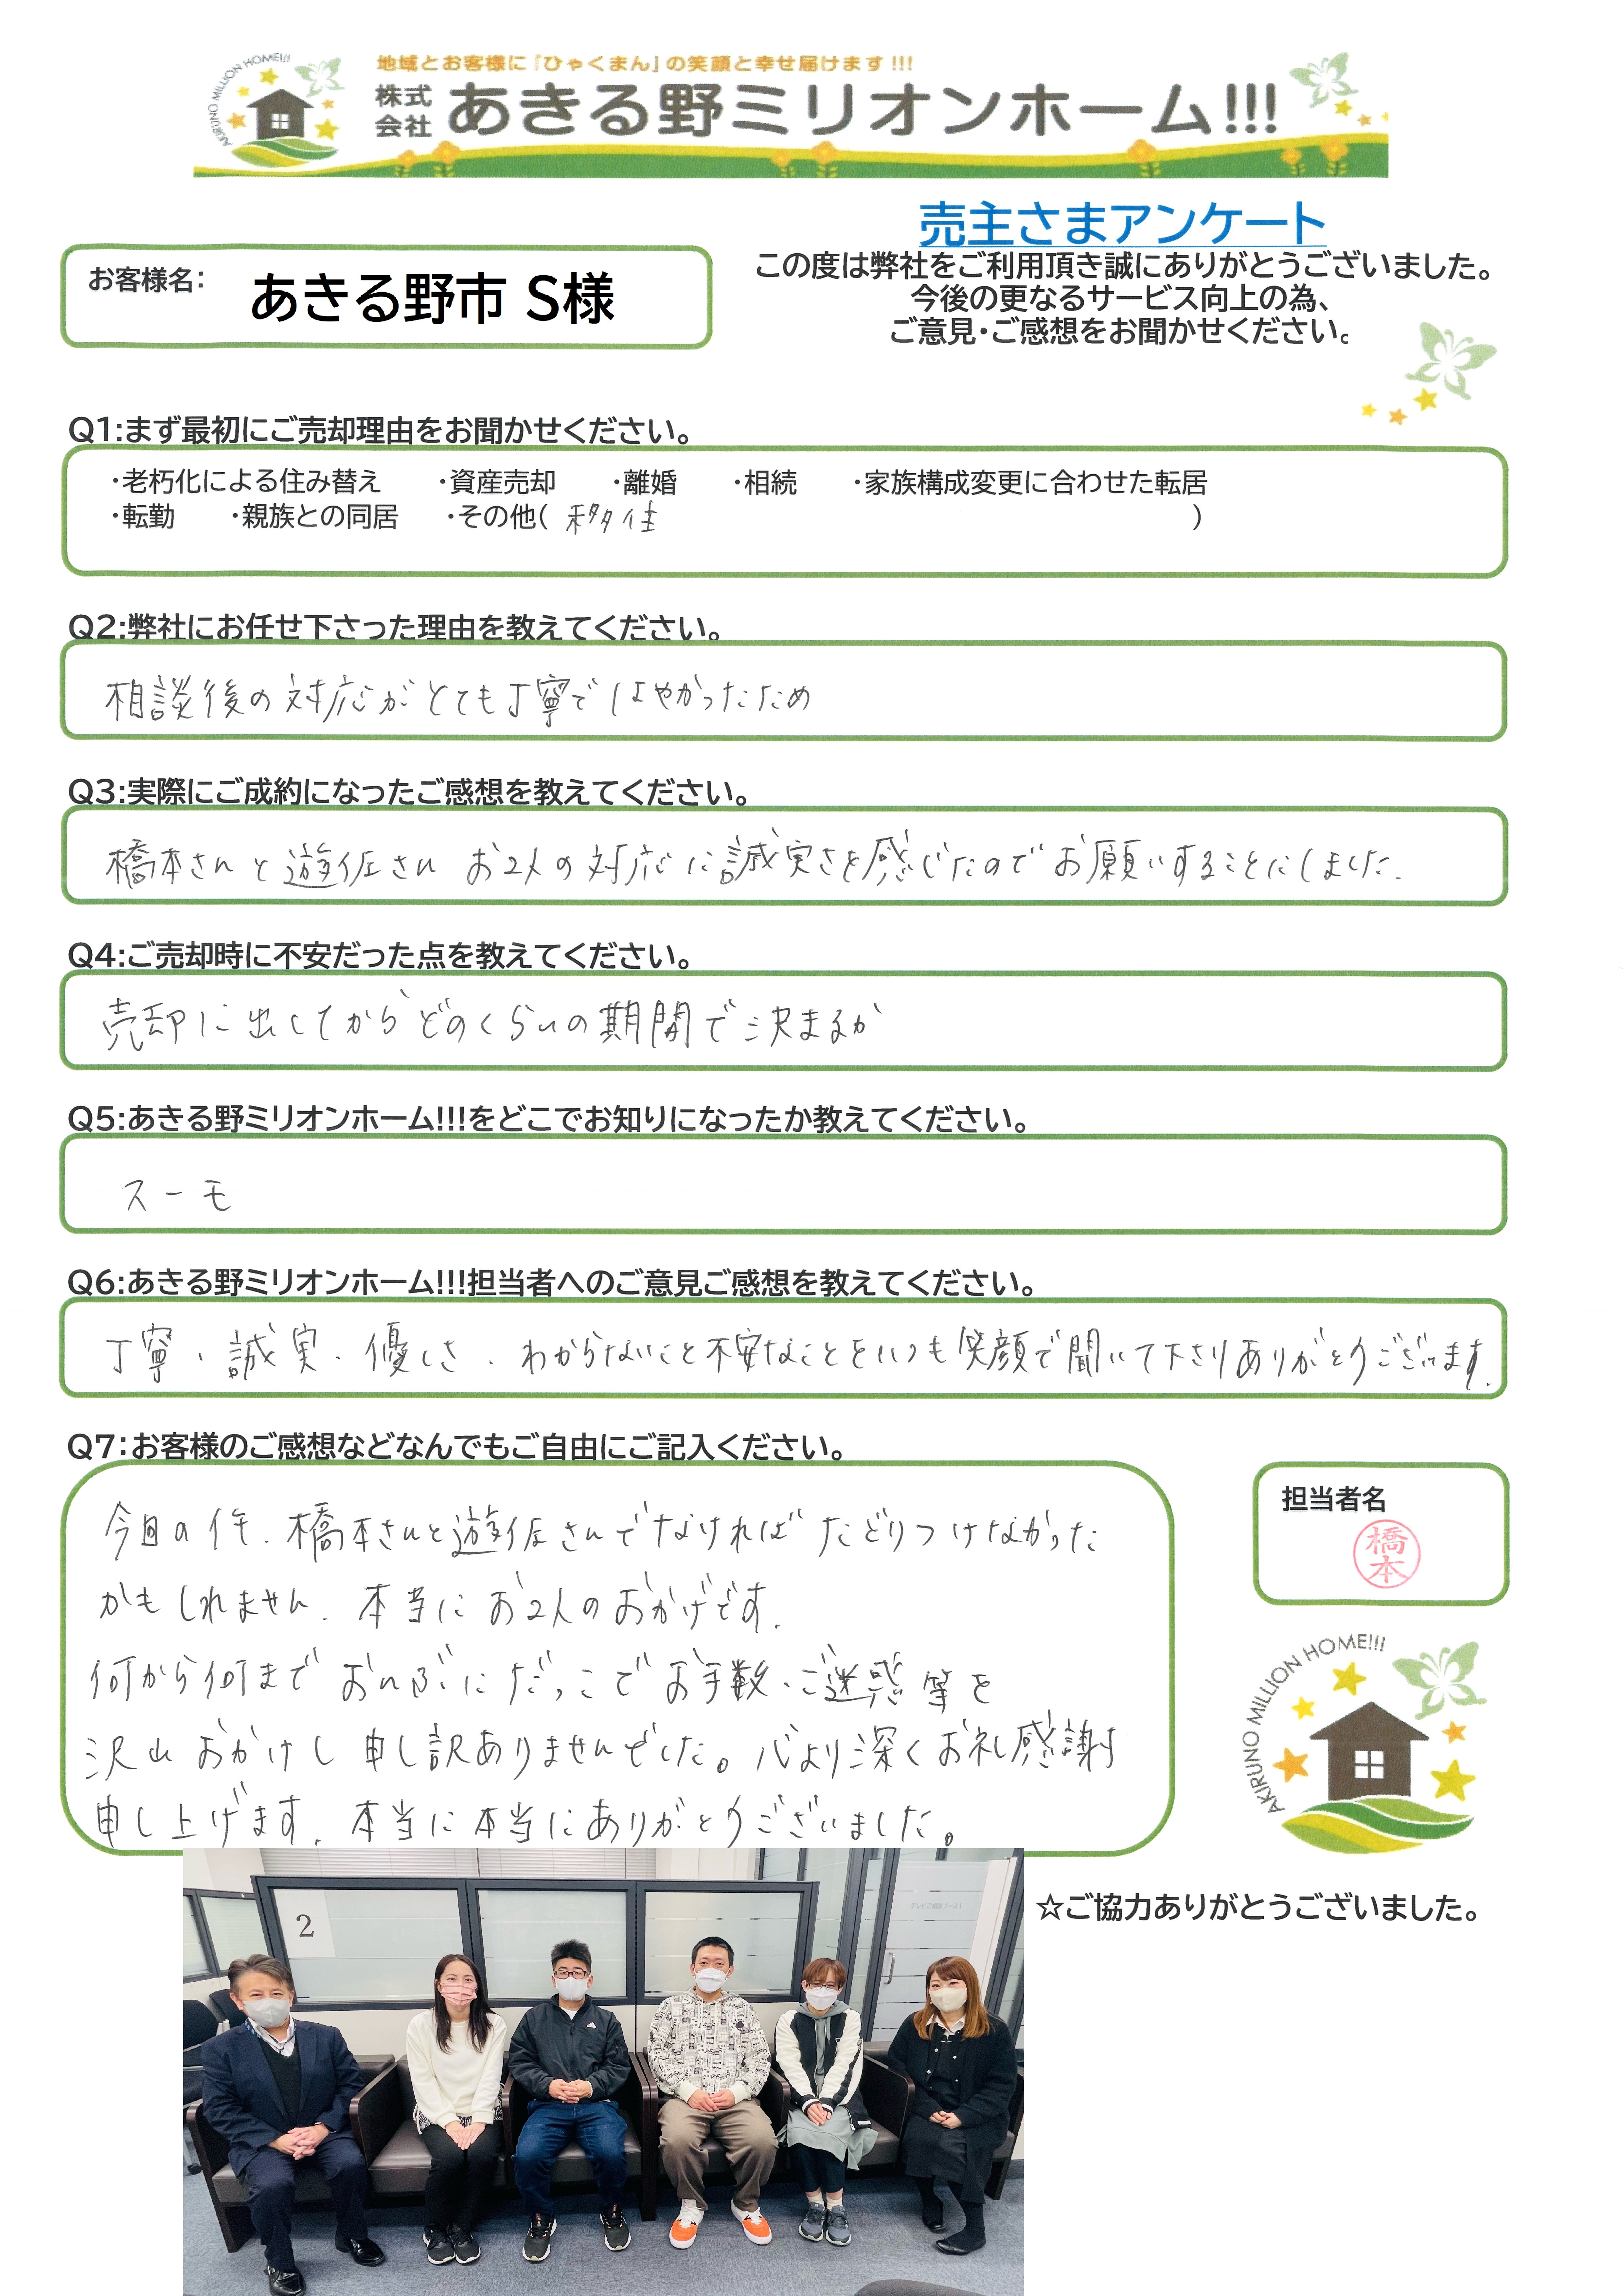 地域とお客様に『ひゃくまん』の笑顔と幸せ届けます!!!
AKIRUNO MILLION HOME!!!
株式会社 あきる野ミリオンホーム!!!
売主さまアンケート
お客様名: あきる野市 S様
この度は弊社をご利用頂き誠にありがとうございました。
今後の更なるサービス向上の為、
ご意見・ご感想をお聞かせください。
Q1:まず最初にご売却理由をお聞かせください。
・老朽化による住み替え ・資産売却 ・離婚 ・相続 ・家族構成変更に合わせた転居
・転勤 ・親族との同居 ・その他( 移住 )
Q2:弊社にお任せ下さった理由を教えてください。
相談後の対応がとても丁寧ではやかったため
Q3:実際にご成約になったご感想を教えてください。
橋本さんと遊佐さん お2人の対応に誠実さを感じたのでお願いすることにしました.
Q4:ご売却時に不安だった点を教えてください。
売却に出してからどのくらいの期間で決まるか
Q5:あきる野ミリオンホーム!!!をどこでお知りになったか教えてください。
スーモ
Q6:あきる野ミリオンホーム!!!担当者へのご意見ご感想を教えてください。
丁寧、誠実、優しさ、わからないこと不安なことをいつも笑顔で聞いて下さりありがとうございます.
Q7:お客様のご感想などなんでもご自由にご記入ください。
今回の件、橋本さんと遊佐さんでなければたどりつけなかった
かもしれません. 本当にお2人のおかげです.
何から何までおんぶにだっこでお手数、ご迷惑等を
沢山おかけし申し訳ありませんでした。心より深くお礼感謝
申し上げます. 本当に本当にありがとうございました。
担当者名
橋本
AKIRUNO MILLION HOME!!!
☆ご協力ありがとうございました。
2